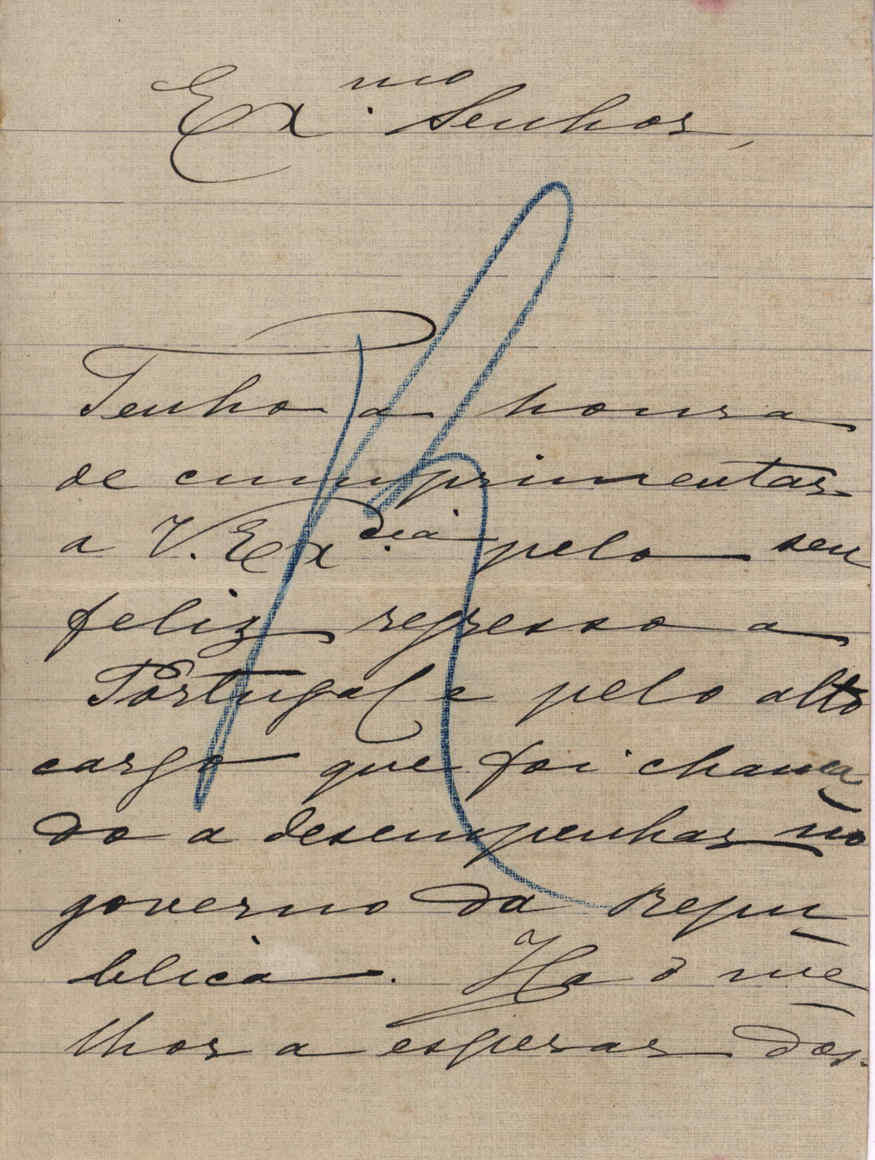 Exmo. Senhor,
Tenho a honra
de cumprimentar
a V. Excia. pelo seu
feliz regresso a
Portugal e pelo alto
cargo que foi chama
do a desempenhar no
governo da Repu-
blica. Ha o me-
lhor a esperar dos